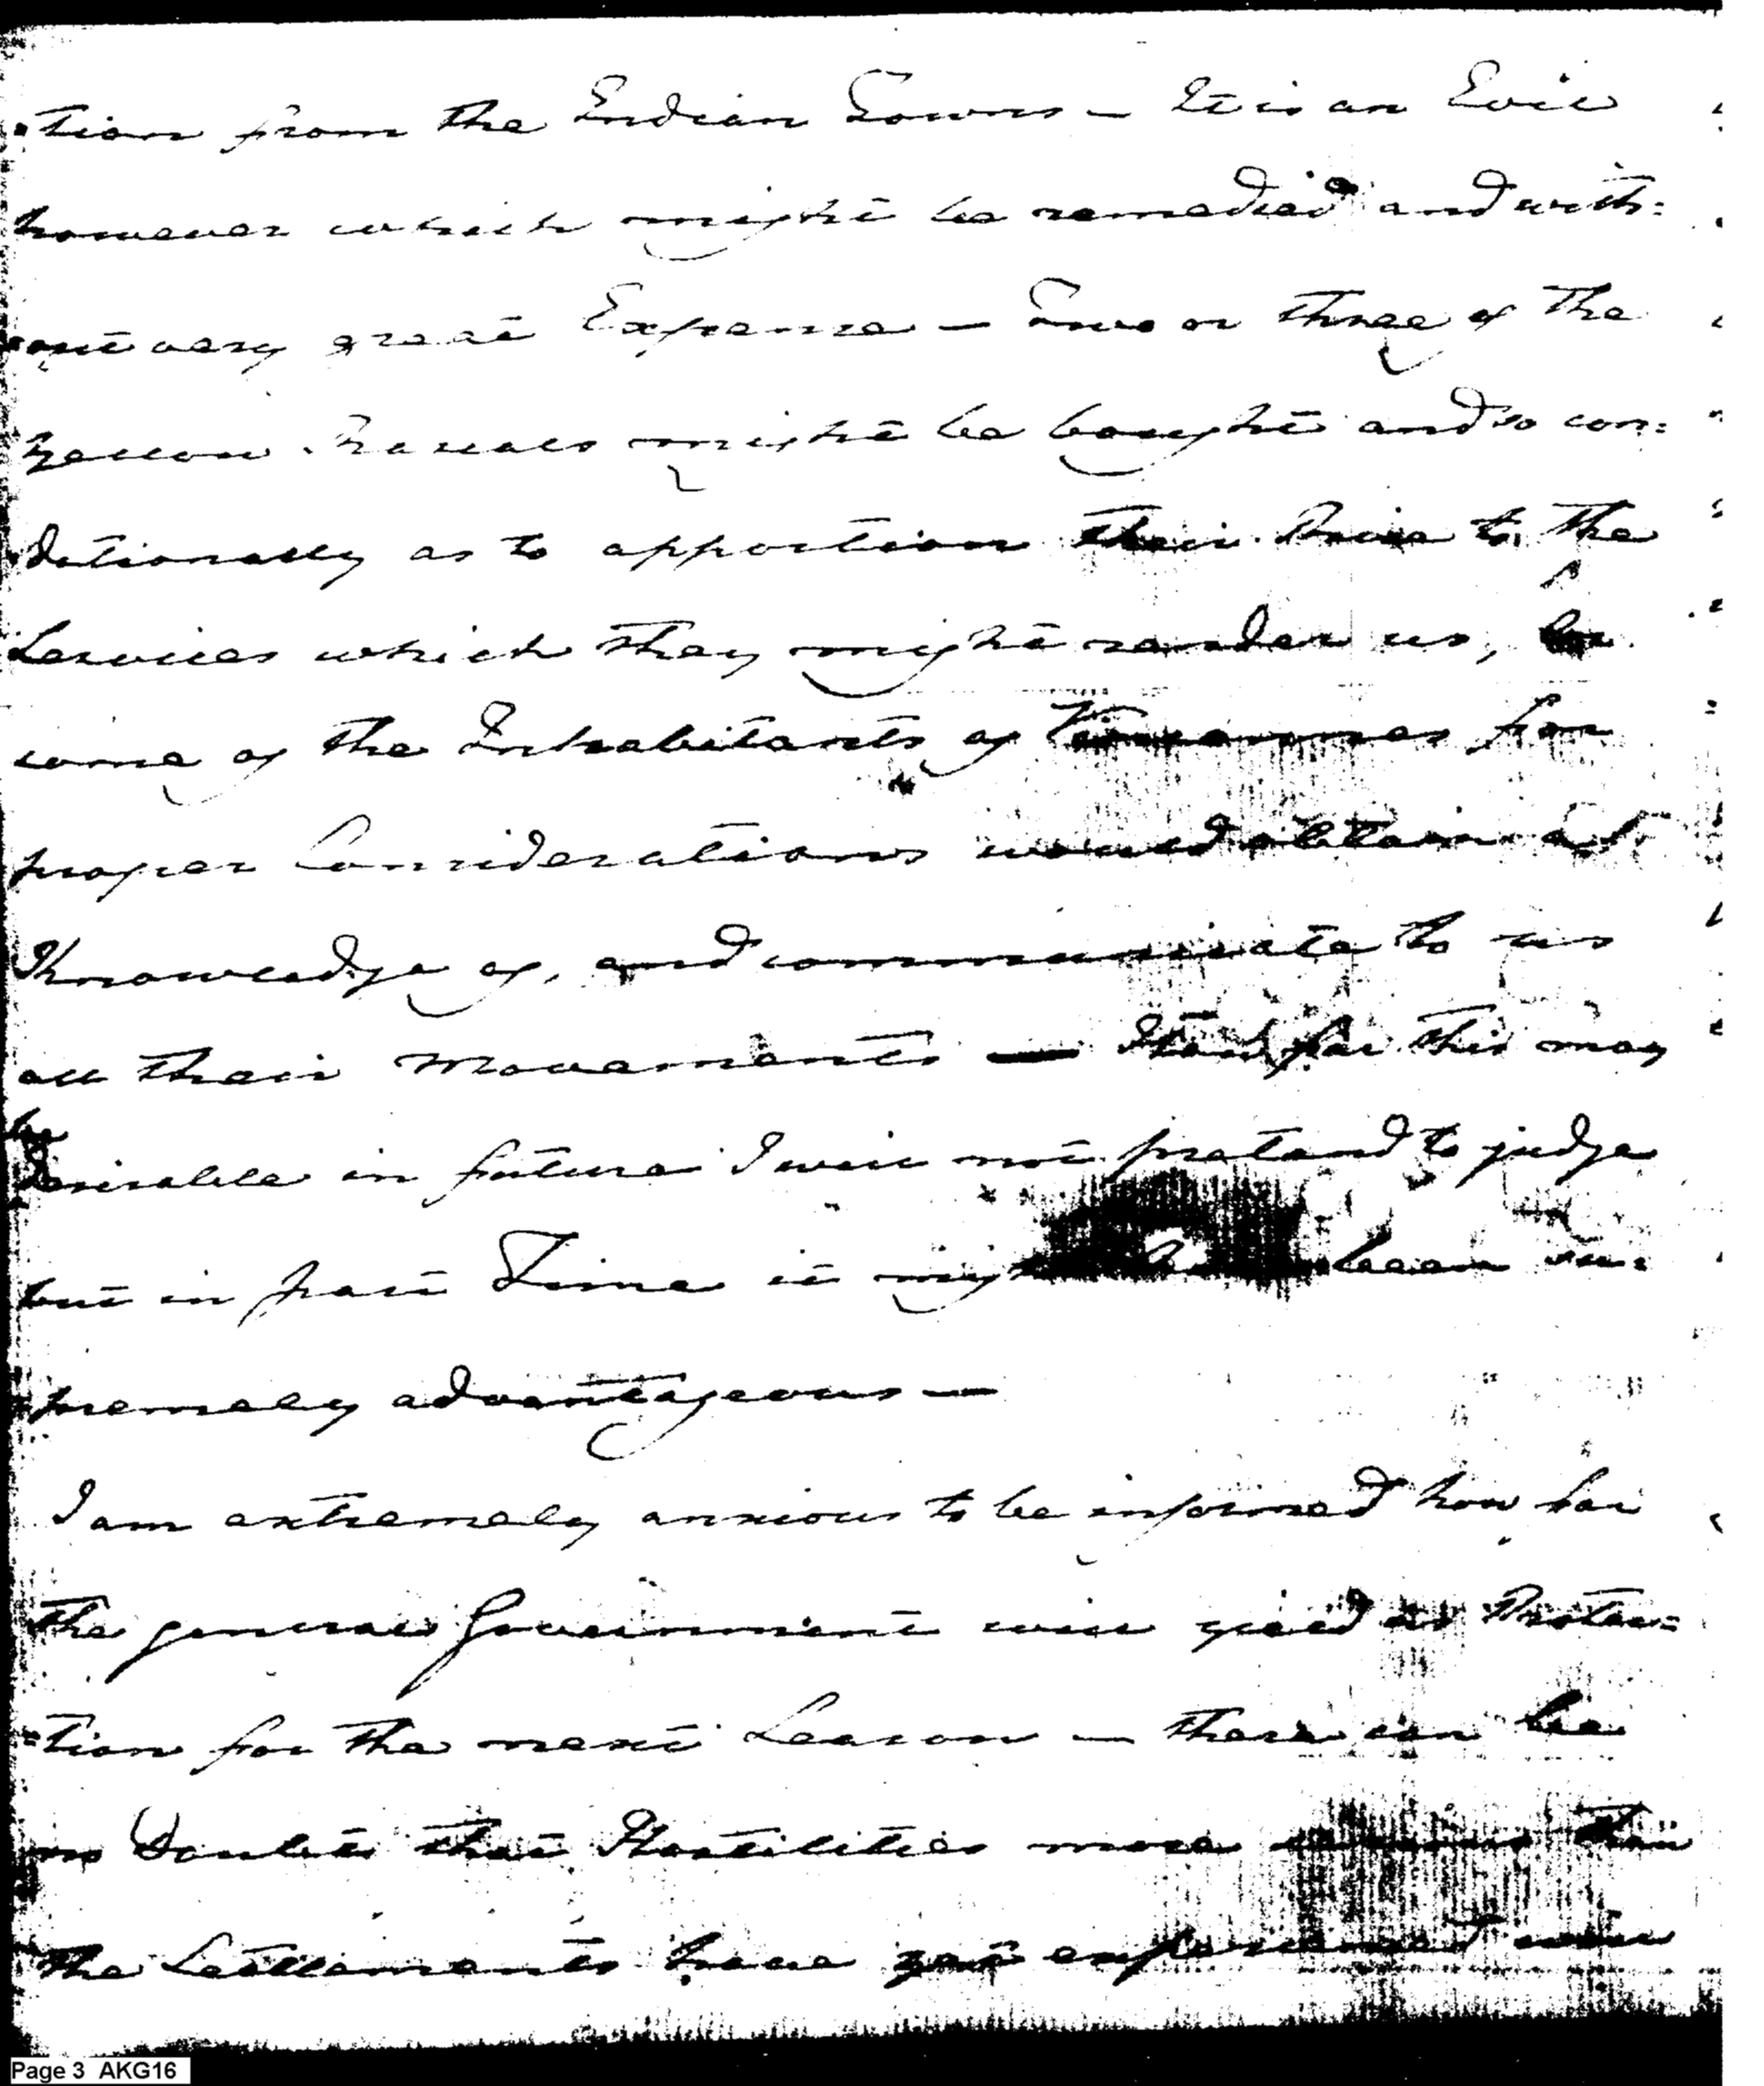 :tion from the Indian Towns — It is an Evil
however which might be remedied and with:
:out very great Expense — Two or three of the
yellow Rascals might be bought and so con:
:ditionally as to apportion their Price to the
Services which they might render us, or
some of the Inhabitants of Vincennes for
proper Considerations would obtain a
Knowledge of, and communicate to us
all their Movements — How far this may
be
desirable in future I will not pretend to judge
but in past Time it might have been su:
:premely advantageous —
I am extremely anxious to be informed how far
the general Government will yield us Protec=
=tion for the next Season — there can be
no Doubt that Hostilities more serious than
the Settlements have yet experienced will
Page 3 AKG16